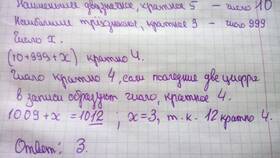 Наименьшее двузначное, кратное 5 – число 10
Наибольшее трехзначное, кратное 9 – число 999
Число x.
(10+999+x) кратно 4.
Число кратно 4, если последние две цифры
в записи образуют число, кратное 4.
1009+x = 1012 ; x=3, т.к. 12 кратно 4
Ответ: 3.